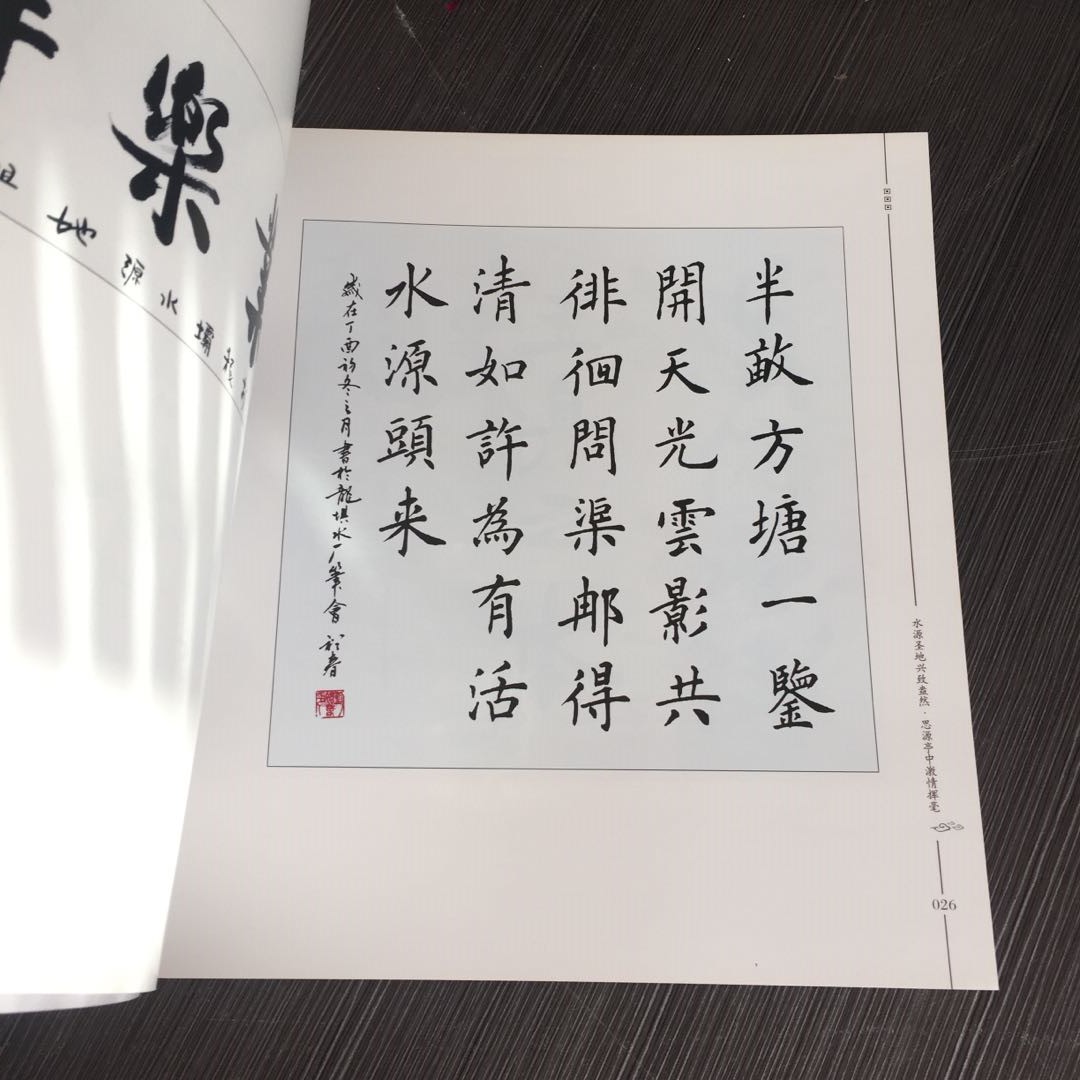 半畝方塘一鑒
開天光雲影共
徘徊問渠那得
清如許為有活
水源頭来
歲在丁酉初冬之月書於龍埧水厂筆會
水源圣地兴致盎然·思源亭中激情挥毫
026
樂
地源水壩